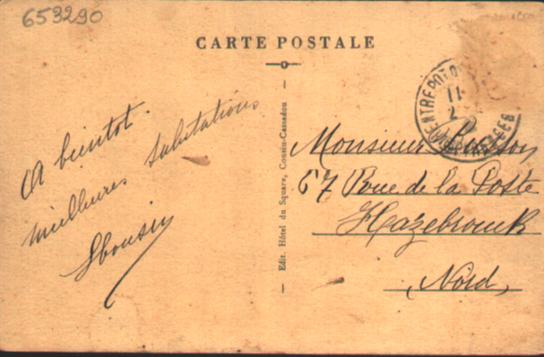 653290
CARTE POSTALE
A bientot.
meilleures salutations
Edit. Hôtel du Square, Cousin-Camadou
ENTREPOT
11
2
Monsieur
67 Rue de la Poste
Hazebrouck
Nord,